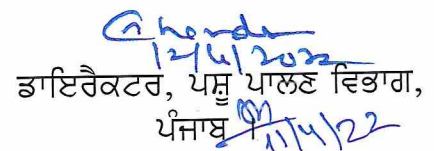 12/4/2022
ਡਾਇਰੈਕਟਰ, ਪਸ਼ੂ ਪਾਲਣ ਵਿਭਾਗ,
ਪੰਜਾਬ
11/4/22